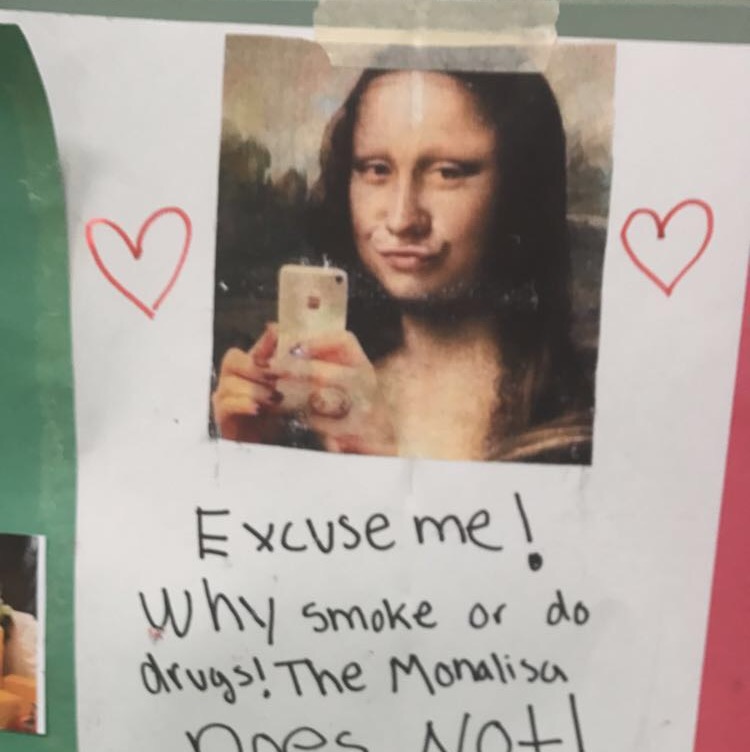 Excuse me!
Why smoke or do
drugs! The Monalisa
Does Not!